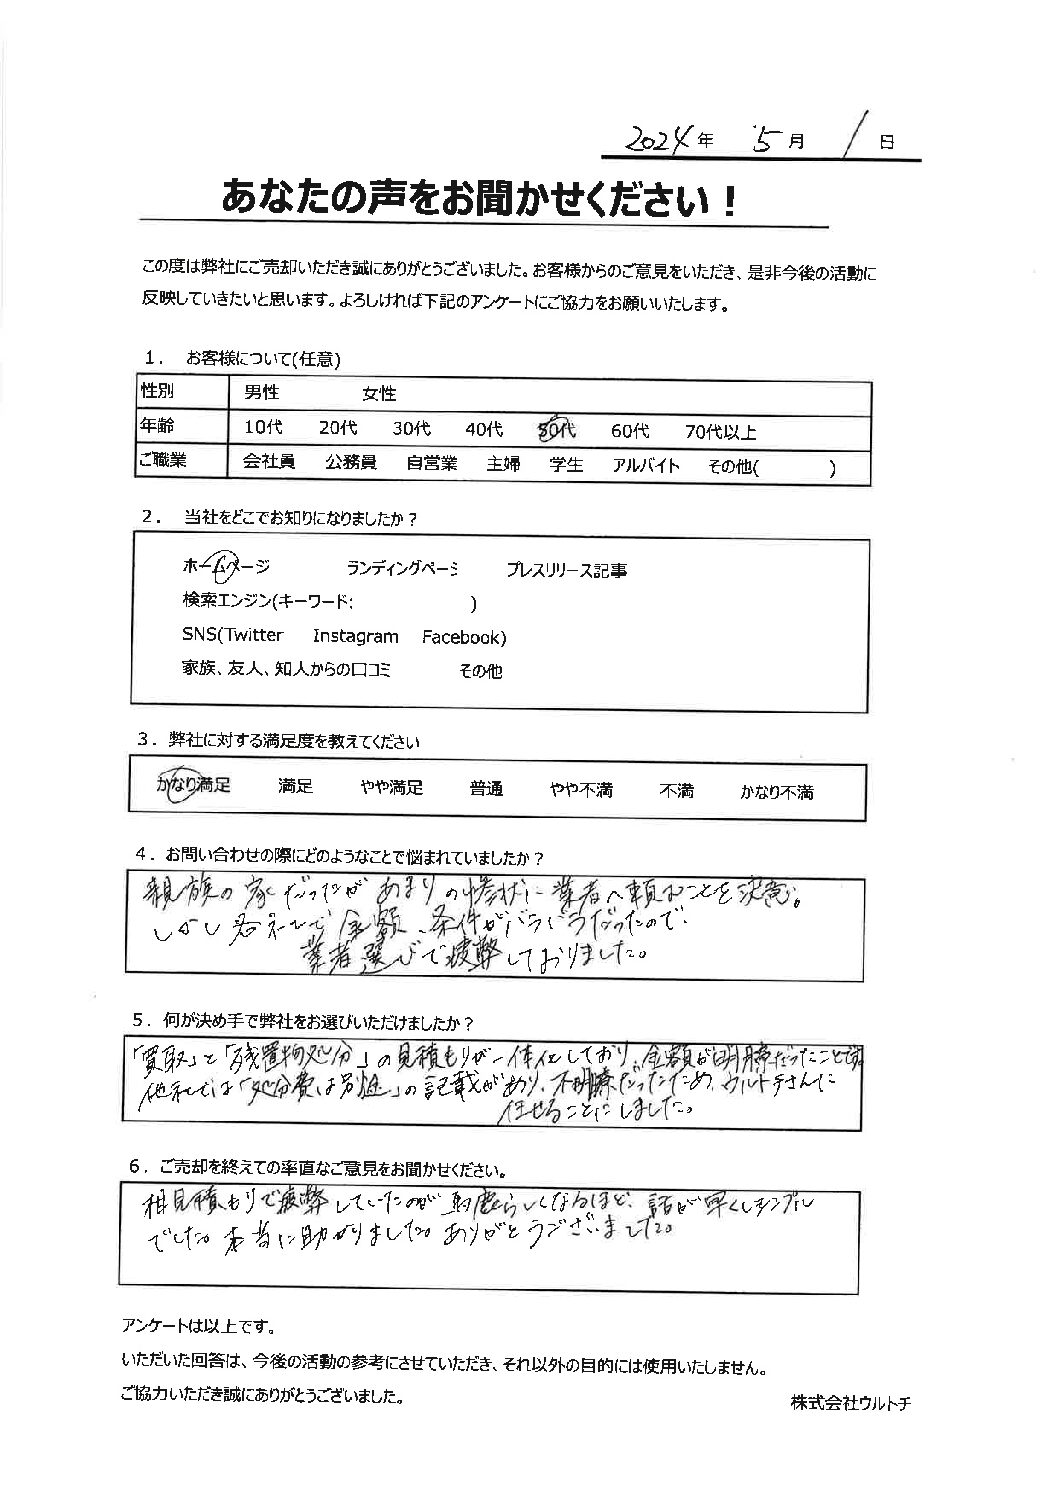 2024年 5月 1日
あなたの声をお聞かせください！
この度は弊社にご売却いただき誠にありがとうございました。お客様からのご意見をいただき、是非今後の活動に
反映していきたいと思います。よろしければ下記のアンケートにご協力をお願いいたします。
1. お客様について(任意)
性別 男性 女性
年齢 10代 20代 30代 40代 50代 60代 70代以上
ご職業 会社員 公務員 自営業 主婦 学生 アルバイト その他( )
2. 当社をどこでお知りになりましたか？
ホームページ ランディングページ プレスリリース記事
検索エンジン(キーワード: )
SNS(Twitter Instagram Facebook)
家族、友人、知人からの口コミ その他
3. 弊社に対する満足度を教えてください
かなり満足 満足 やや満足 普通 やや不満 不満 かなり不満
4. お問い合わせの際にどのようなことで悩まれていましたか？
親族の家だったがあまりの惨状に業者へ頼むことを決意。
しかし各社で金額、条件がバラバラだったので
業者選びで疲弊しておりました。
5. 何が決め手で弊社をお選びいただけましたか？
「買取」と「残置物処分」の見積もりが一体化しており、金額が明瞭だったことです
他社では「処分費は別途」の記載があり、不明瞭だったため、ウルトチさんに
任せることにしました。
6. ご売却を終えての率直なご意見をお聞かせください。
相見積もりで疲弊していたのが馬鹿らしくなるほど、話が早くシンプル
でした。本当に助かりました。ありがとうございました。
アンケートは以上です。
いただいた回答は、今後の活動の参考にさせていただき、それ以外の目的には使用いたしません。
ご協力いただき誠にありがとうございました。
株式会社ウルトチ